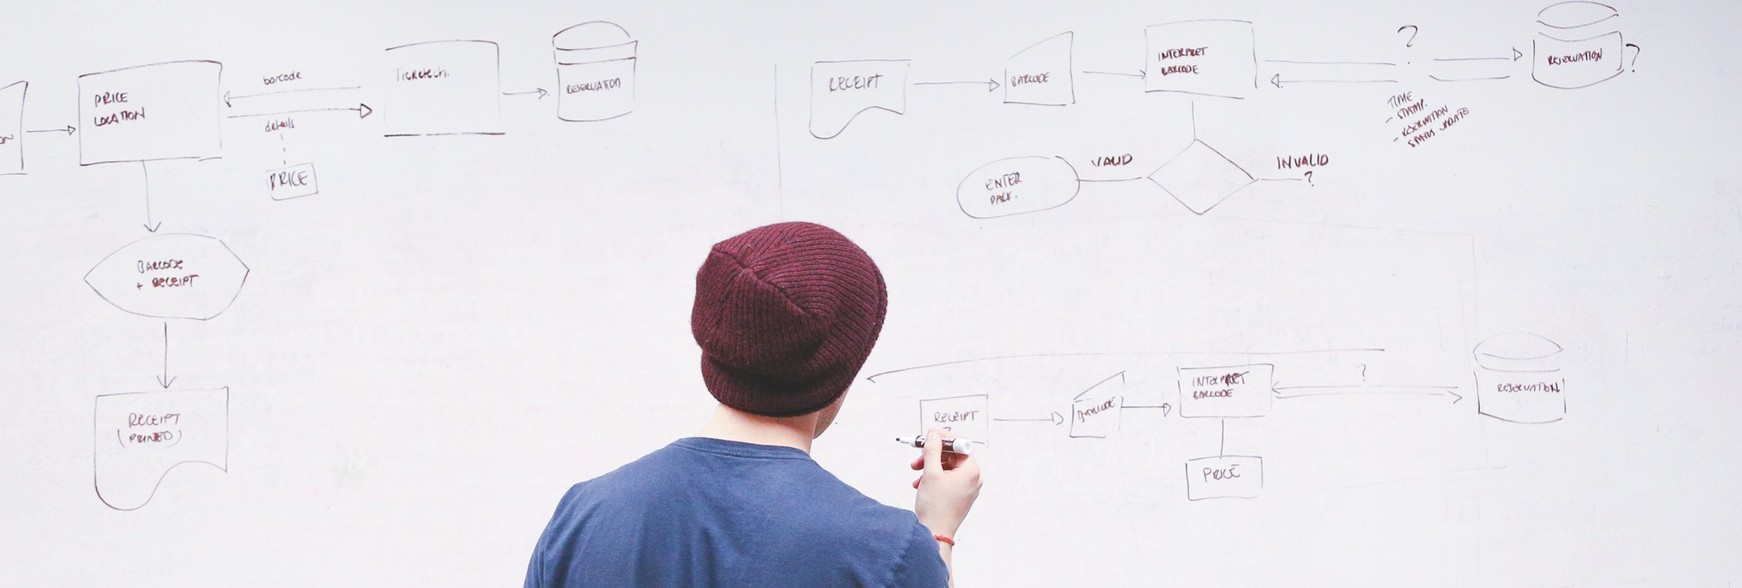 PRICE
LOCATION
barcode
details
PRICE
Ticketech.
RESERVATION
BARCODE
+ RECEIPT
RECEIPT
(PRINTED)
RECEIPT
BARCODE
INTERPRET
BARCODE
?
RESERVATION ?
TIME
- STAMP.
- RESERVATION
STATUS UPDATE
VALID
INVALID
?
ENTER
PARK.
RECEIPT
?
BARCODE
INTERPRET
BARCODE
?
RESERVATION
PRICE